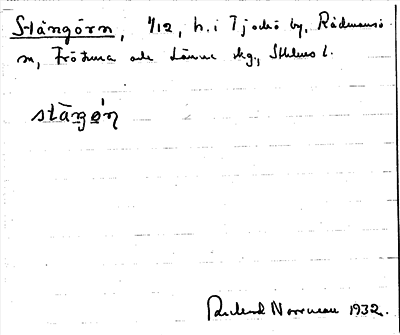 Stångörn, 1/12, h. i Tjockö by, Rådmansö
sn, Frötuna och Länna skg., Sthlms l.
stångö̀n
Norrman 1932.